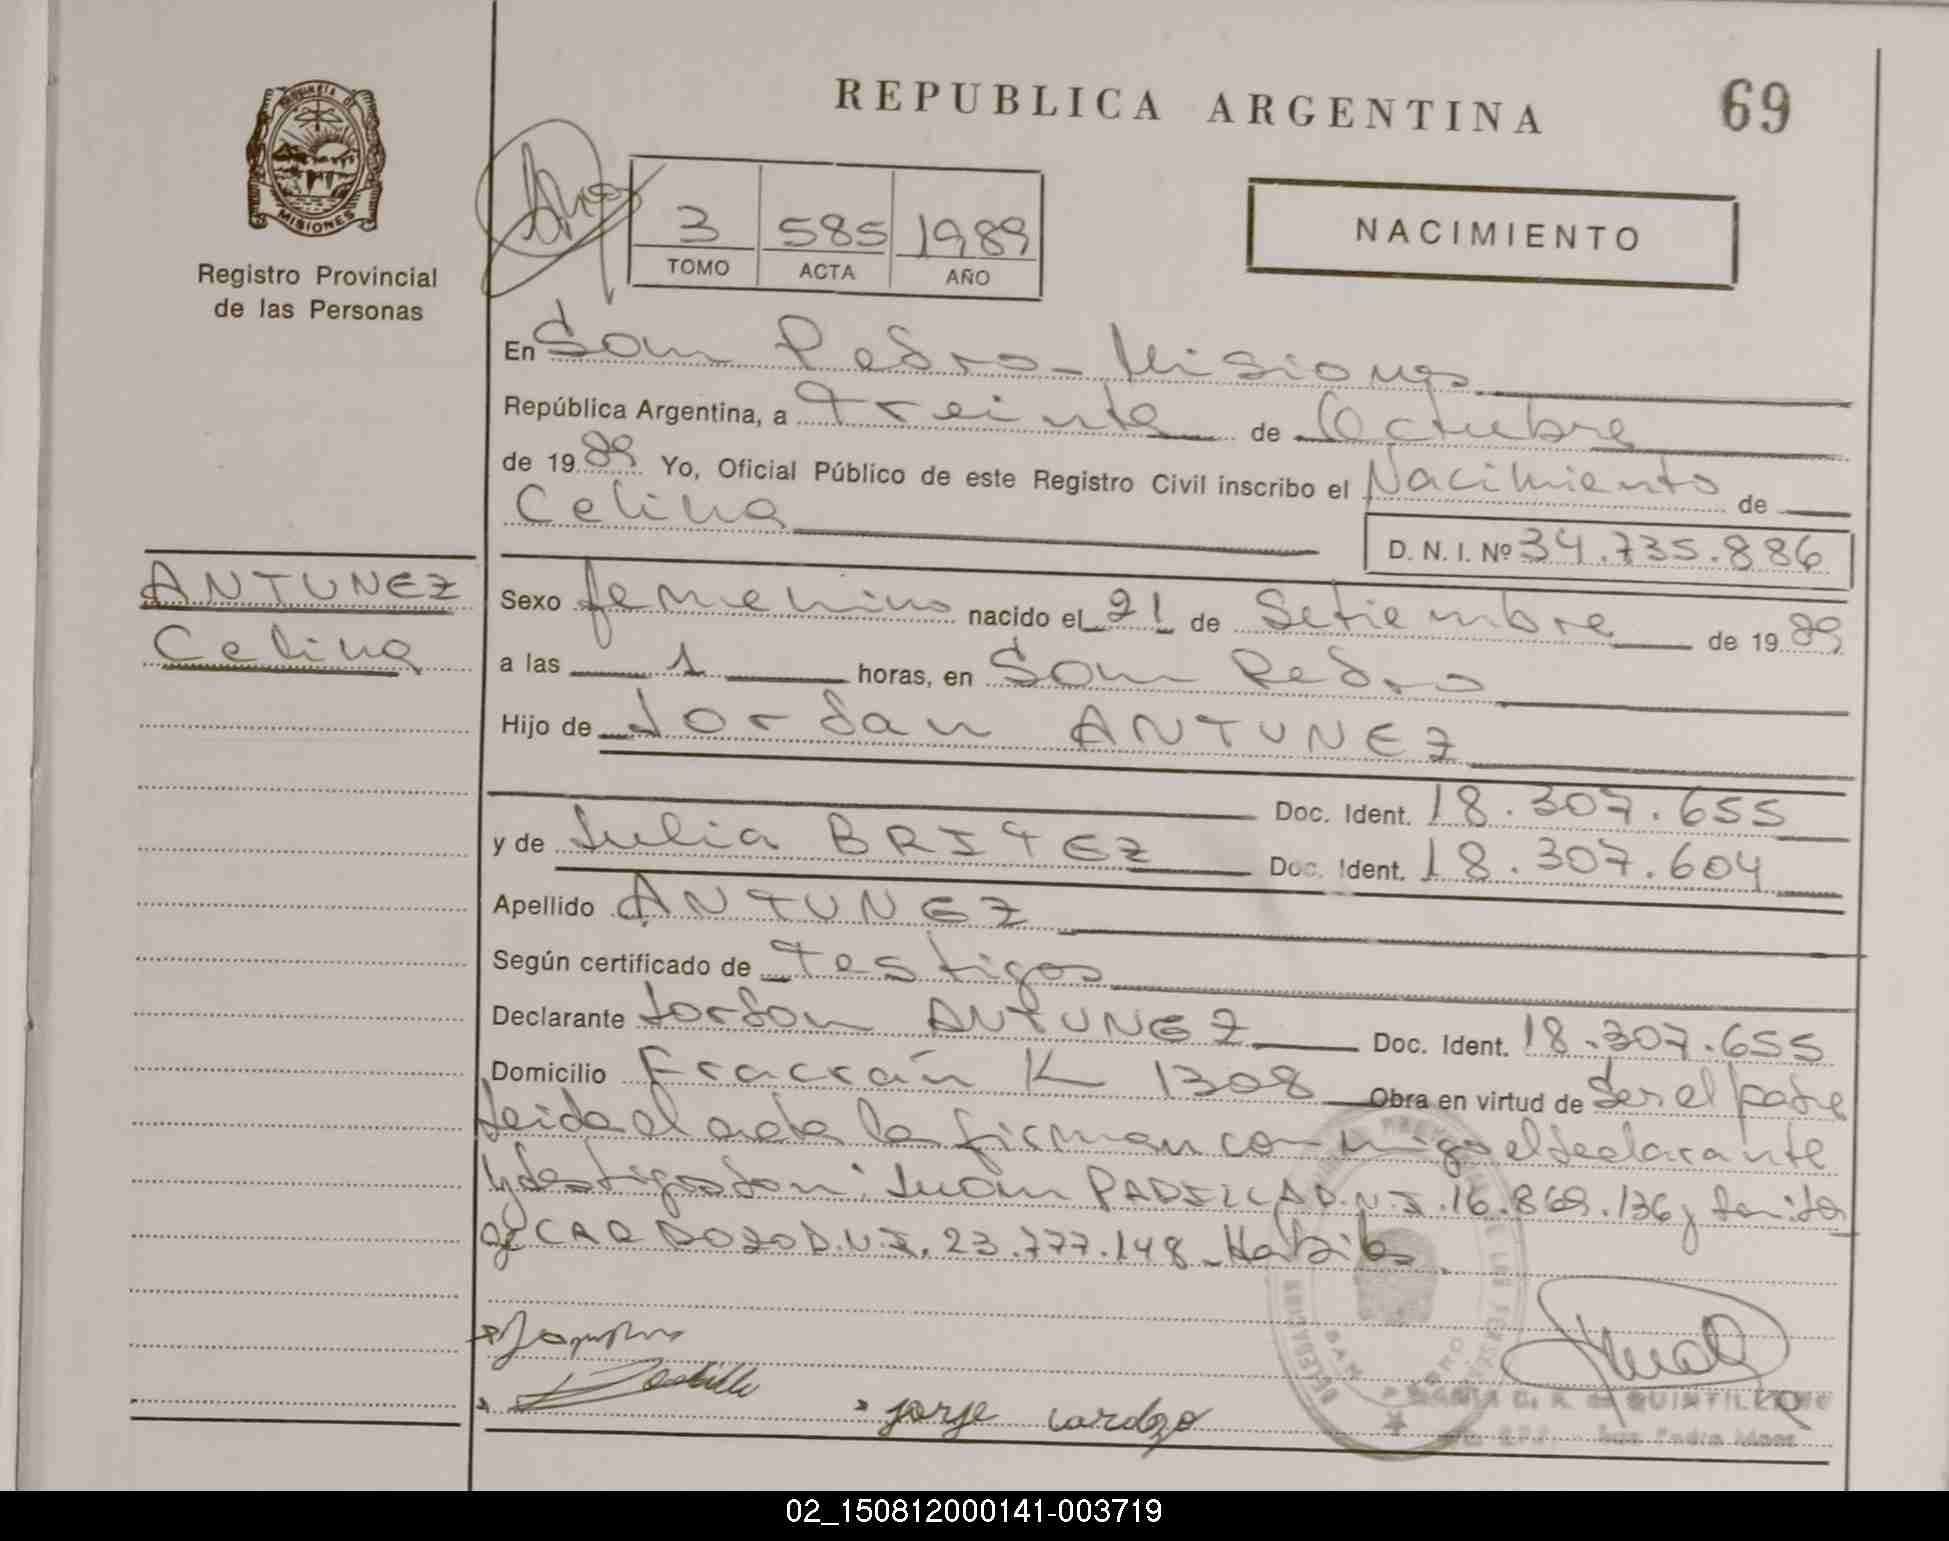 REPUBLICA ARGENTINA
69
PROVINCIA DE
MISIONES
Registro Provincial
de las Personas
3 585 1989
TOMO ACTA AÑO
NACIMIENTO
En San Pedro - Misiones
República Argentina, a Treinta de Octubre
de 1989 Yo, Oficial Público de este Registro Civil inscribo el Nacimiento de
Celina
D. N. I. Nº 34.735.886
ANTUNEZ
Celina
Sexo femenino nacido el 21 de Setiembre de 1989
a las 1 horas, en San Pedro
Hijo de Jordan ANTUNEZ
Doc. Ident. 18.307.655
y de Julia BRITEZ Doc. Ident. 18.307.604
Apellido ANTUNEZ
Según certificado de Testigos
Declarante Jordan ANTUNEZ Doc. Ident. 18.307.655
Domicilio Fracrán K 1308 Obra en virtud de Ser el padre
Leida el acta la firman conmigo el declarante
y testigos Don: Juan PADILLA D.N.I. 16.869.136 y
CARDOZO D.N.I. 23.777.148 -
jorge cardozo
MARIA C. R. de
02_150812000141-003719